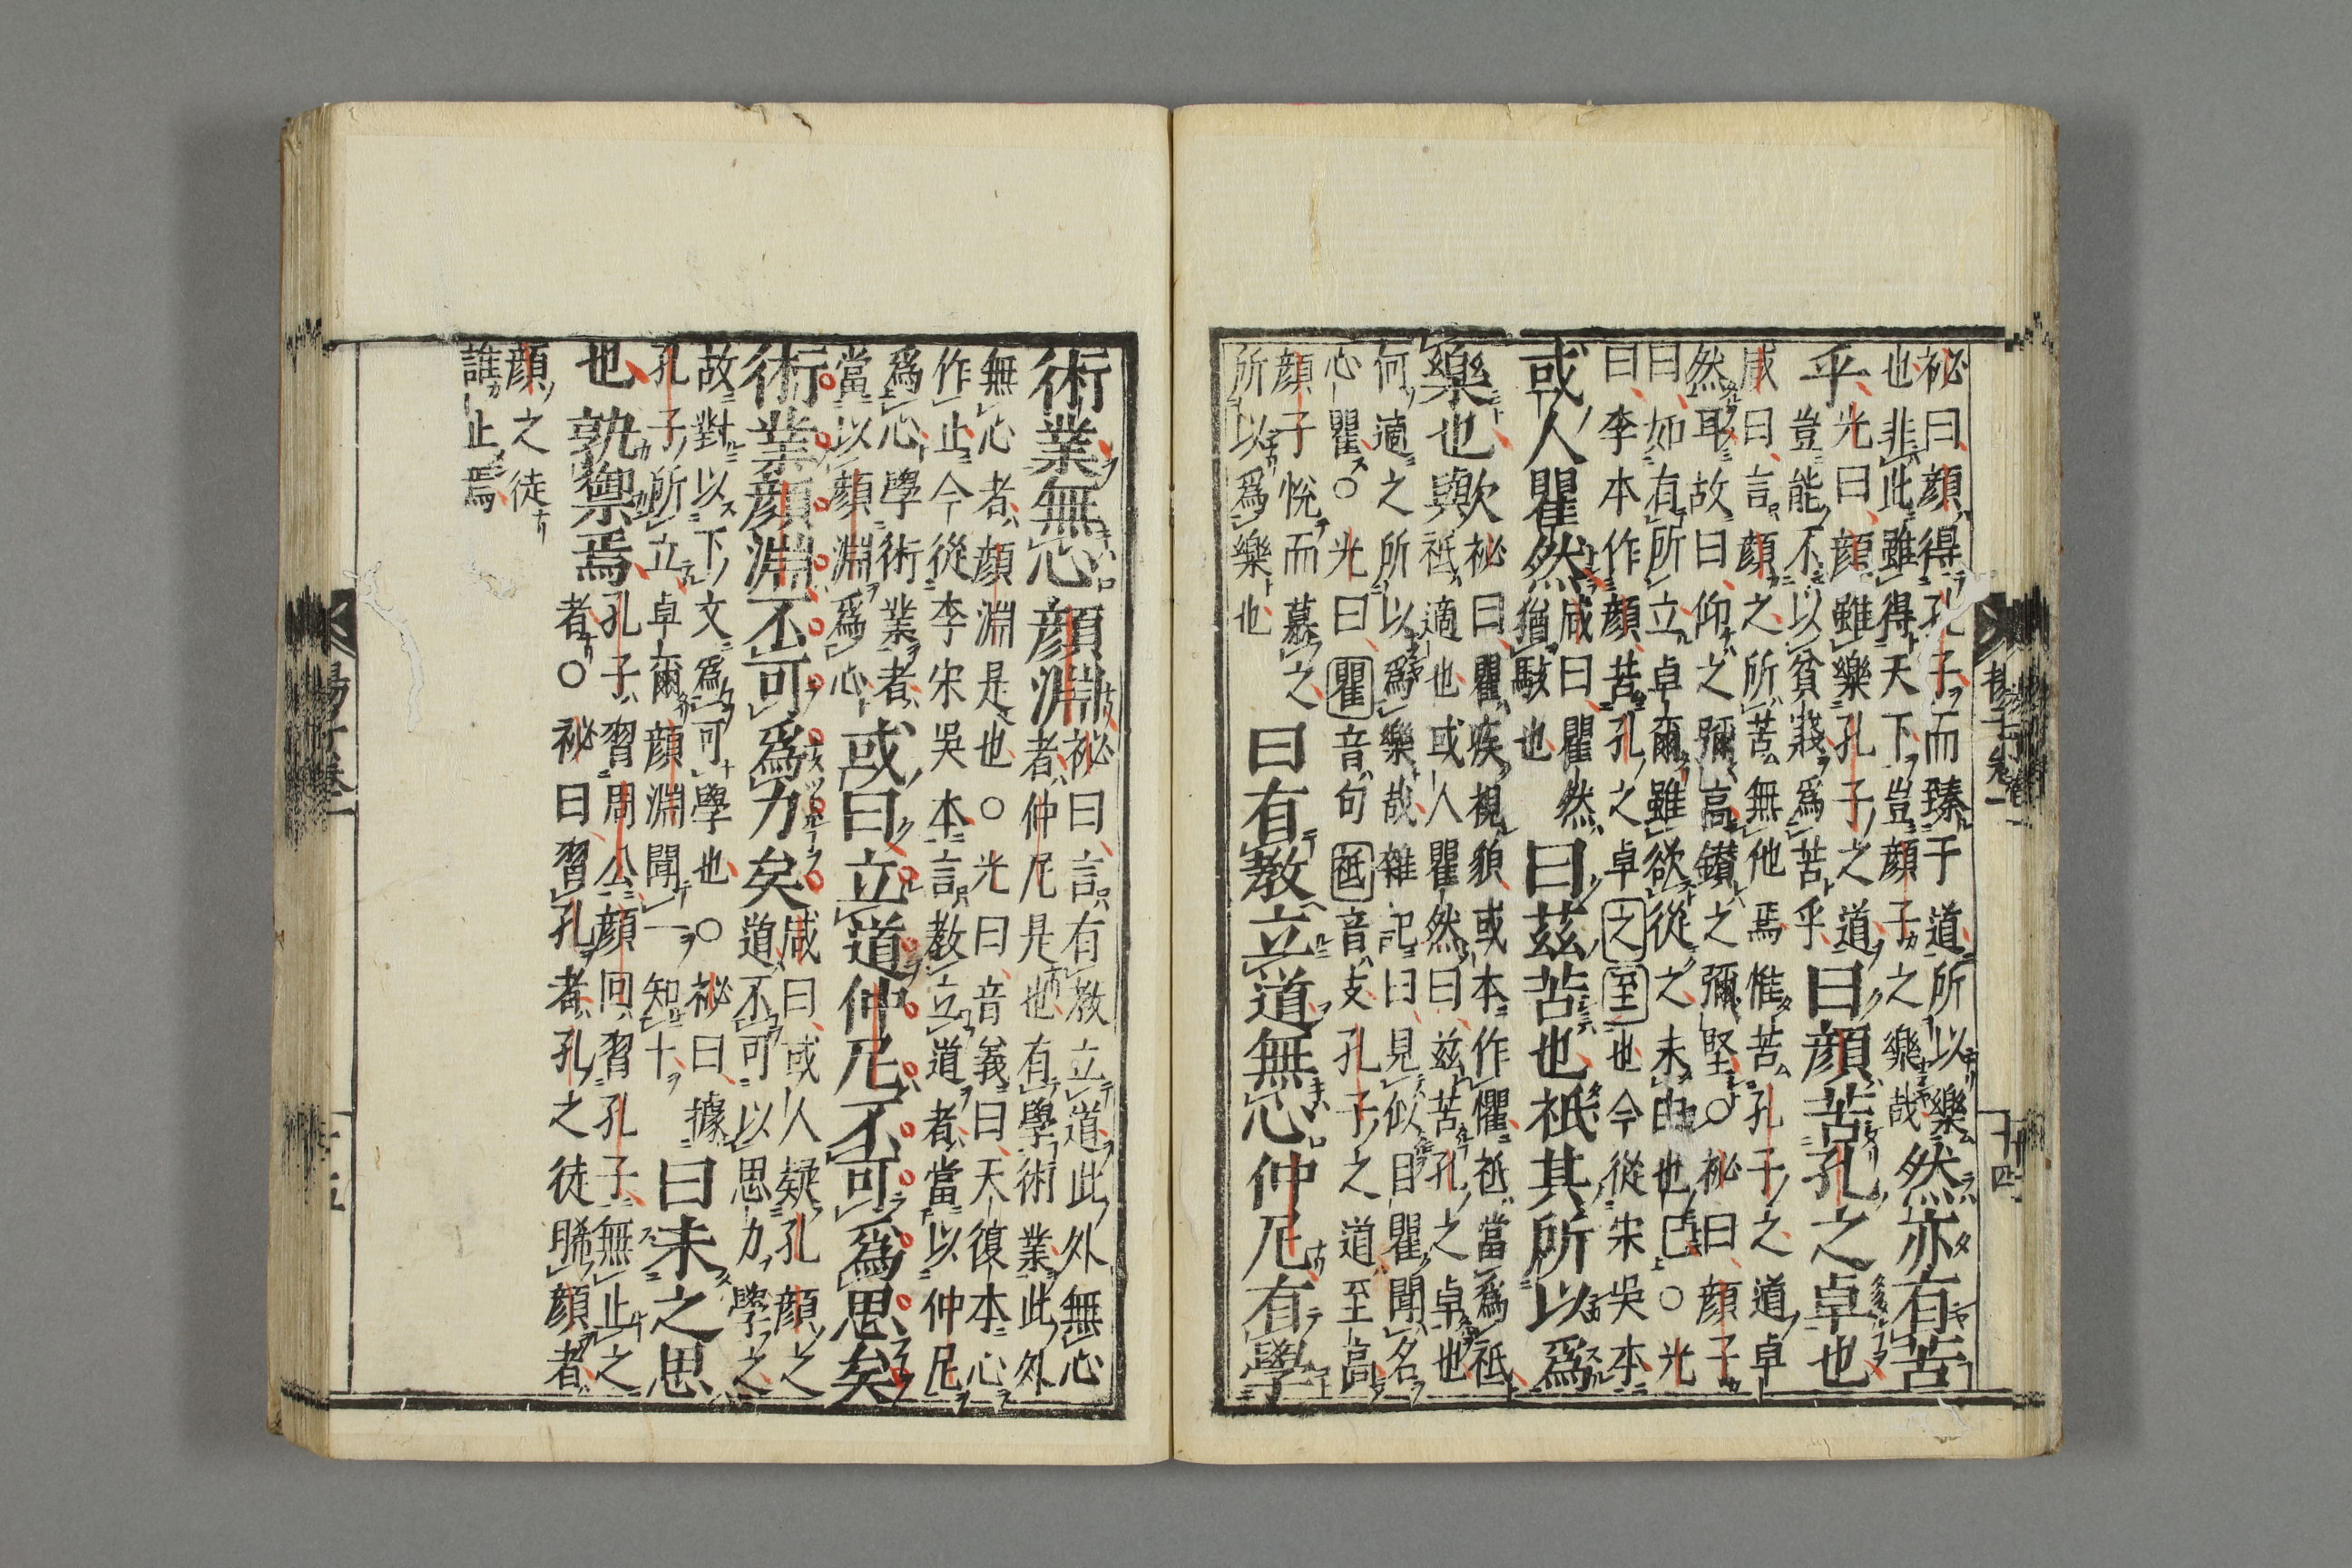 祕曰顔得孔子而臻于道所以樂
也非此雖得天下豈顔子之樂哉
然亦有苦
乎
光曰顔雖樂孔子之道
豈能不以貧窶爲苦乎
曰顔苦孔之卓也
咸曰言顔之所苦無他焉惟苦孔子之道卓
然耳故曰仰之彌高鑚之彌堅○祕曰顔子
曰如有所立卓爾雖欲從之未由也已○光
曰李本作顔苦孔之卓之至也今從宋吳本
或人瞿然
咸曰瞿然
猶駭也
曰茲苦也祇其所以爲
樂也歟
祕曰瞿疾視貌或本作懼祇當爲祇
與祇適也或人瞿然曰茲苦孔之卓也
何適之所以爲樂哉雜記曰見似目瞿聞名
心瞿○光曰瞿音句祇音支孔子之道至高
顔子悅而慕之
所以爲樂也
曰有教立道無心仲尼有學
術業無心顔淵
祕曰言有教立道此外無心
者仲尼是也有學術業此外
無心者顔淵是也○光曰音義曰天復本心
作止今從李宋吳本言教立道者當以仲尼
爲心學術業者
當以顔淵爲心
或曰立道仲尼不可爲思矣
術業顔淵不可爲力矣
咸曰或人疑孔顔之
道不可以思力學之
故對以下文爲可學也○祕曰據
孔子所立卓爾顔淵聞一知十
曰未之思
也孰禦焉
孔子習周公顔回習孔子無止之
者○祕曰習孔者孔之徒睎顔者
顔之徒
誰止焉